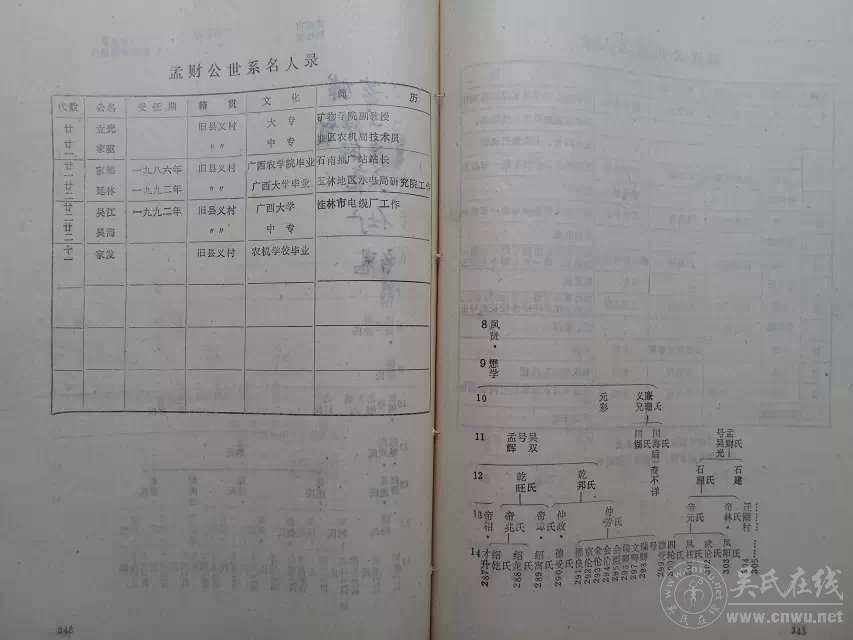 孟财公世系名人录
代数 公名 受任期 籍贯 文化 简历
廿一 立光 旧县义村 大专 矿物学院副教授
廿一 家驱 〃 中专 地区农机局技术员
廿一 家锡 一九八六年 旧县义村 广西农学院毕业 石南推广站站长
廿二 廷林 一九九二年 〃 广西大学毕业 玉林地区水电局研究院工作
廿二 吴江 一九九二年 旧县义村 广西大学 桂林市电缆厂工作
廿二 吴海 〃 中专
家发 旧县义村 农机学校毕业
342
8 凤贤·
9 懋学
10 元彩 义兄 廉珊氏
11 孟辉 号双吴 四湖氏 国海氏后裔不详 号吴光 孟财氏
12 乾旺氏 乾邦氏 石理氏 石建
13 帝相· 帝尧氏 帝璋氏 仲政 仲芳氏 帝元氏 帝林· 迁湖村
14 才升 绍乾氏 绍龙氏 绍富氏 德受氏
287 288 289 290 291 292 293 294 295 296 297 298 299 303 304 305
343
吴氏在线
www.cnwu.net